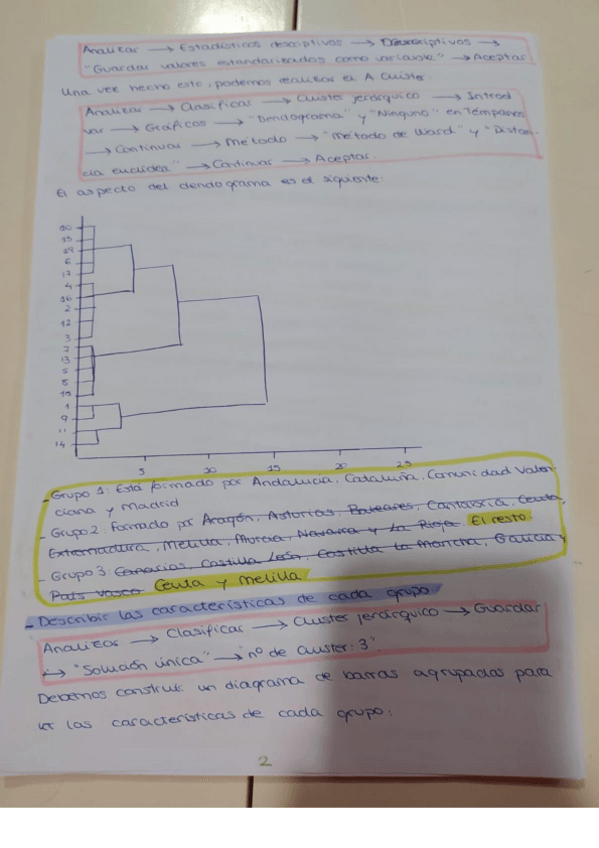 Analizar → Estadísticos descriptivos → Descriptivos →
"Guardar valores estandarizados como variable" → Aceptar
Una vez hecho esto, podemos realizar el A Clúster:
Analizar → Clasificar → Clúster jerárquico → Introd
var → Gráficos → "Dendograma" y "Ninguno" en Témpanos
→ Continuar → Método → "Método de Ward" y "Distan-
cia euclídea" → Continuar → Aceptar.
El aspecto del dendograma es el siguiente:
10
15
19
6
17
4
16
2
12
3
7
13
5
8
1
9
11
14
5 10 15 20 25
- Grupo 1: Está formado por Andalucía, Cataluña, Comunidad Valen-
ciana y Madrid
- Grupo 2: Formado por Aragón, Asturias, Baleares, Cantabria, Ceuta,
Extremadura, Melilla, Murcia, Navarra y La Rioja. El resto.
- Grupo 3: Canarias, Castilla León, Castilla La Mancha, Galicia y
País Vasco Ceuta y Melilla
- Describir las características de cada grupo
Analizar → Clasificar → Clúster jerárquico → Guardar
→ "Solución única" → "nº de Cluster: 3".
Debemos construir un diagrama de barras agrupadas para
ver las características de cada grupo:
2